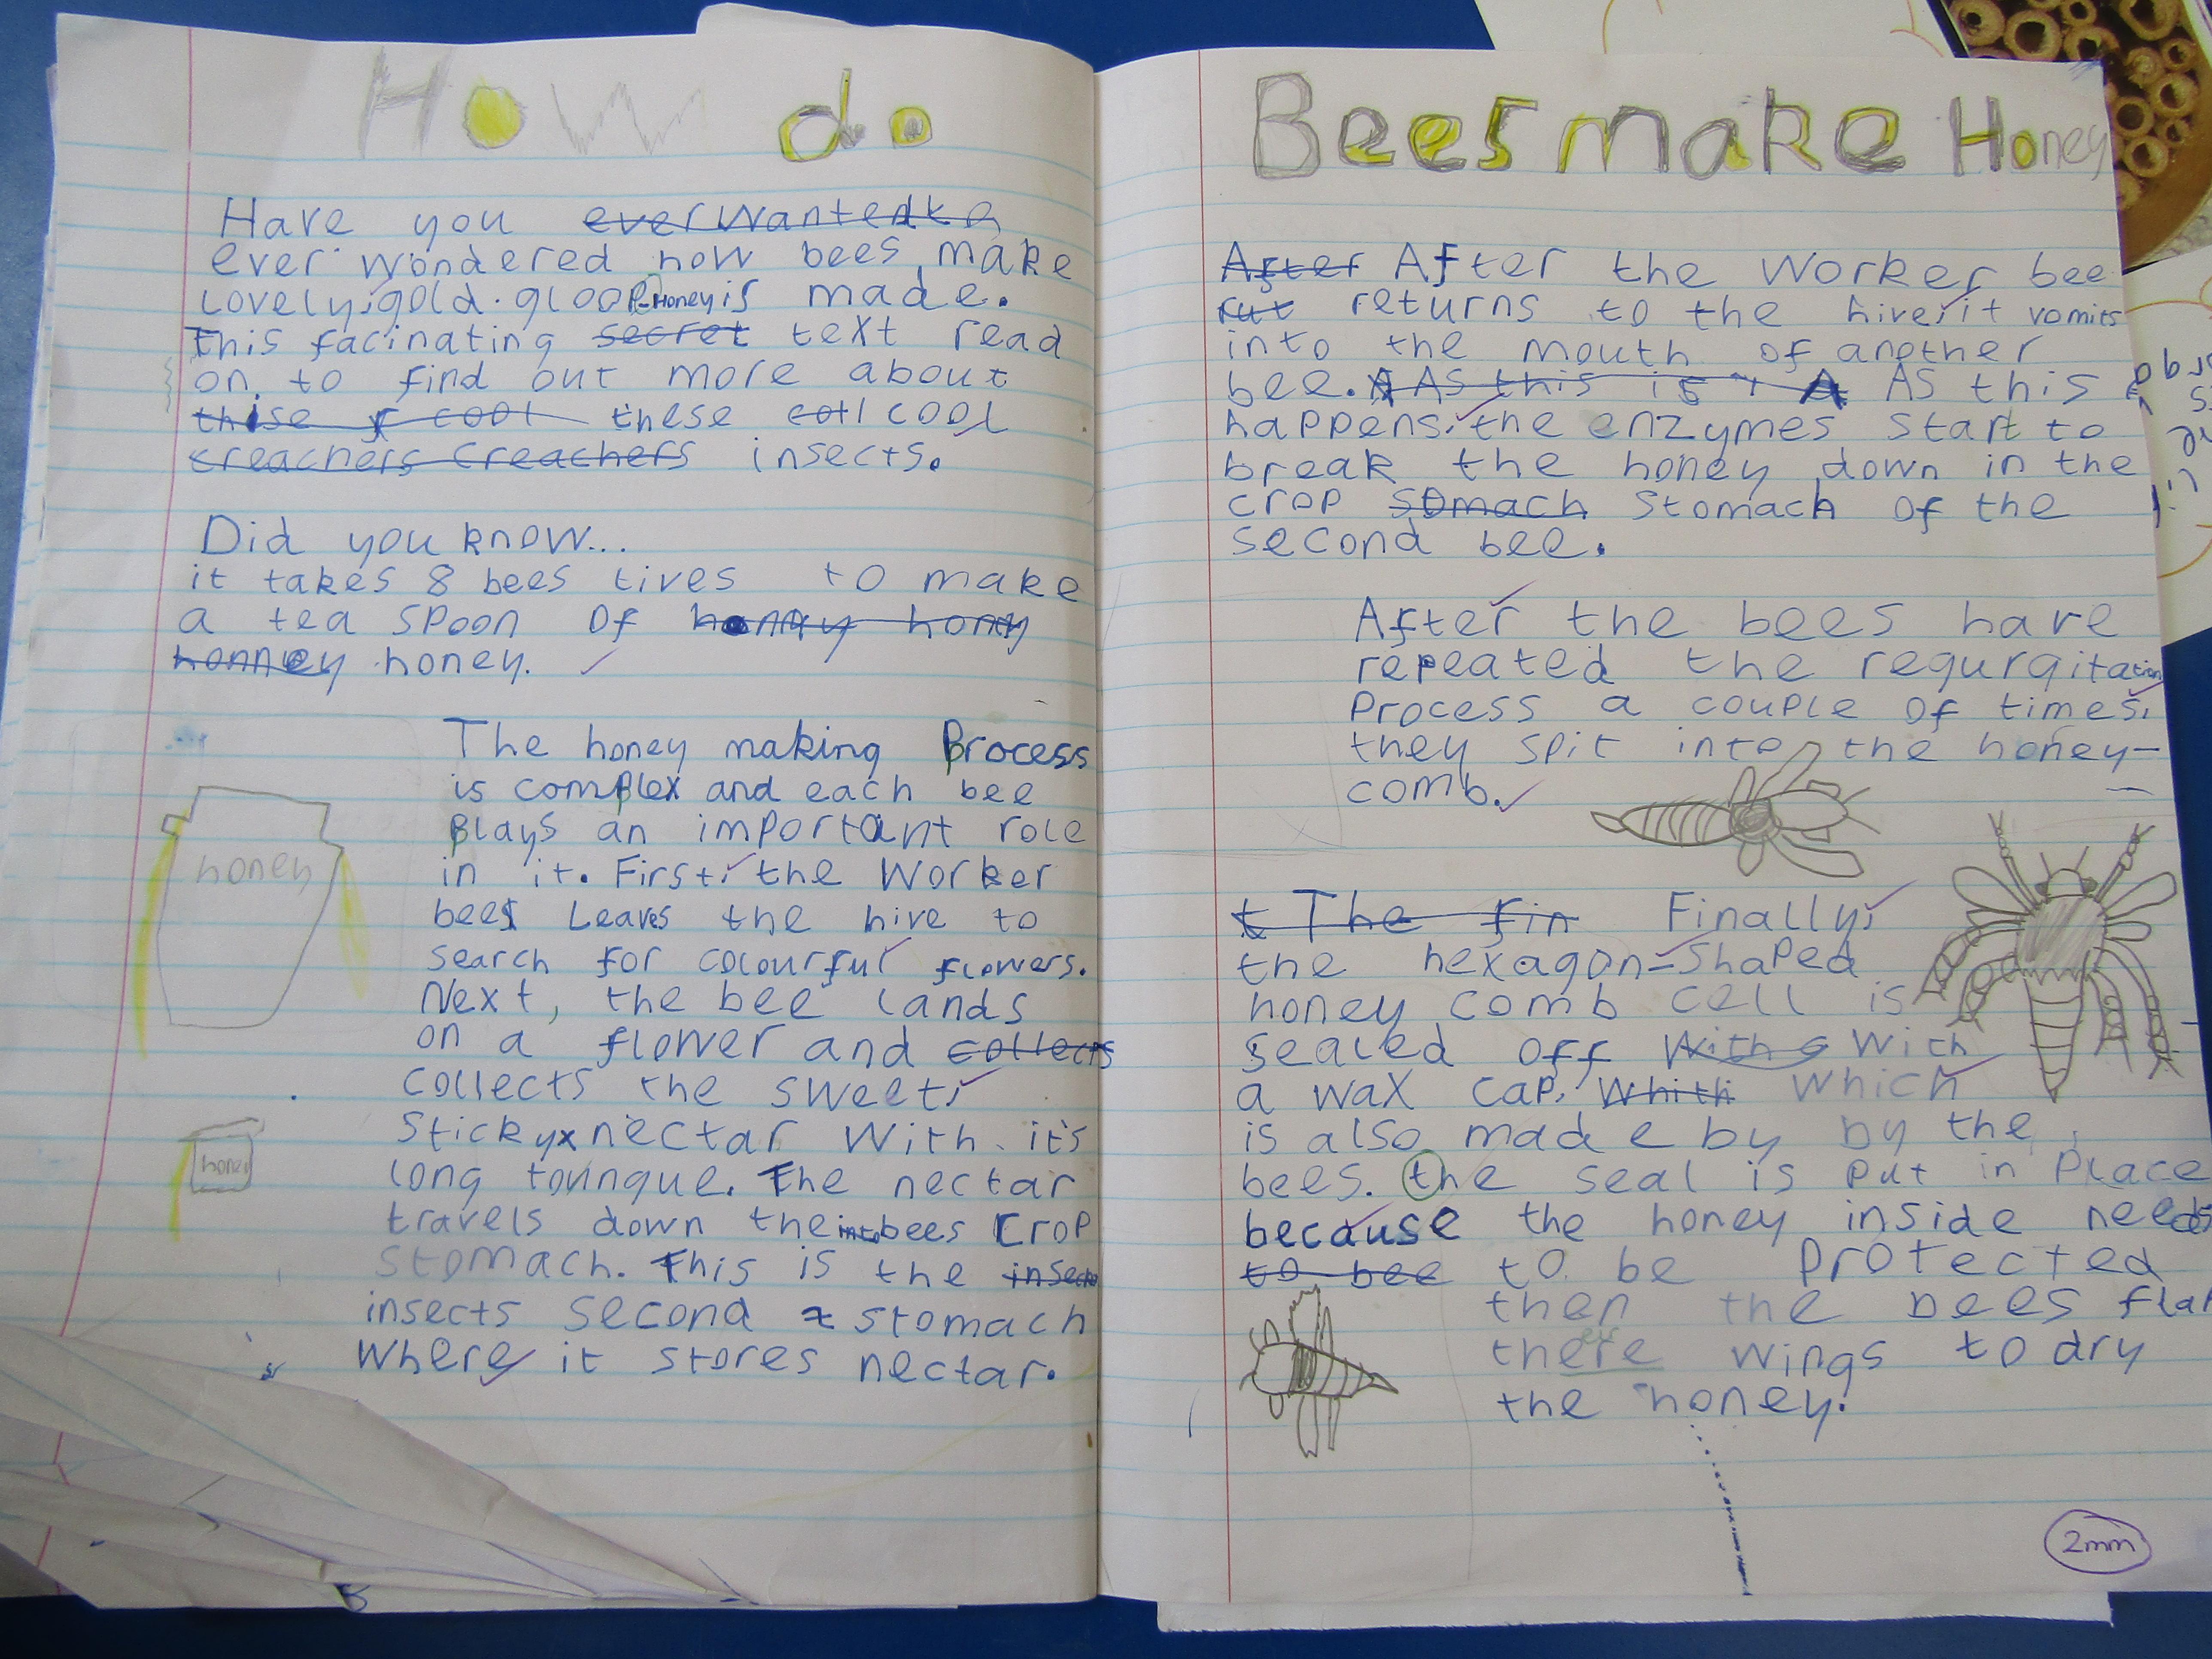 How do
Have you ever wanted to
ever wondered how bees make
lovely, gold. gloop Honey is made.
This facinating secret text read
on to find out more about
these cool these cool
creachers creachers insects.
Did you know...
it takes 8 bees lives to make
a tea spoon of honny hony
honney honey.
The honey making Process
is complex and each bee
plays an important role
in it. First, the worker
bees Leaves the hive to
search for colourful flowers.
Next, the bee lands
on a flower and collects
collects the sweet,
sticky nectar with it's
long tounque. The nectar
travels down the into bees crop
stomach. This is the insects
insects second stomach
where it stores nectar.
honey
honey
Bees make Honey
After After the worker bee
rut returns to the hive, it vomits
into the mouth of another
bee. A As this is A As this
happens, the enzymes start to
break the honey down in the
crop stomach stomach of the
second bee.
After the bees have
repeated the regurgitation
Process a couple of times,
they spit into the honey-
comb.
t The fin Finally,
the hexagon-shaped
honey comb cell is
sealed off with with
a wax cap, Whith which
is also made by by the
bees. the seal is put in place
because the honey inside needs
to bee to be protected
then the bees flap
there wings to dry
the honey.
2mm